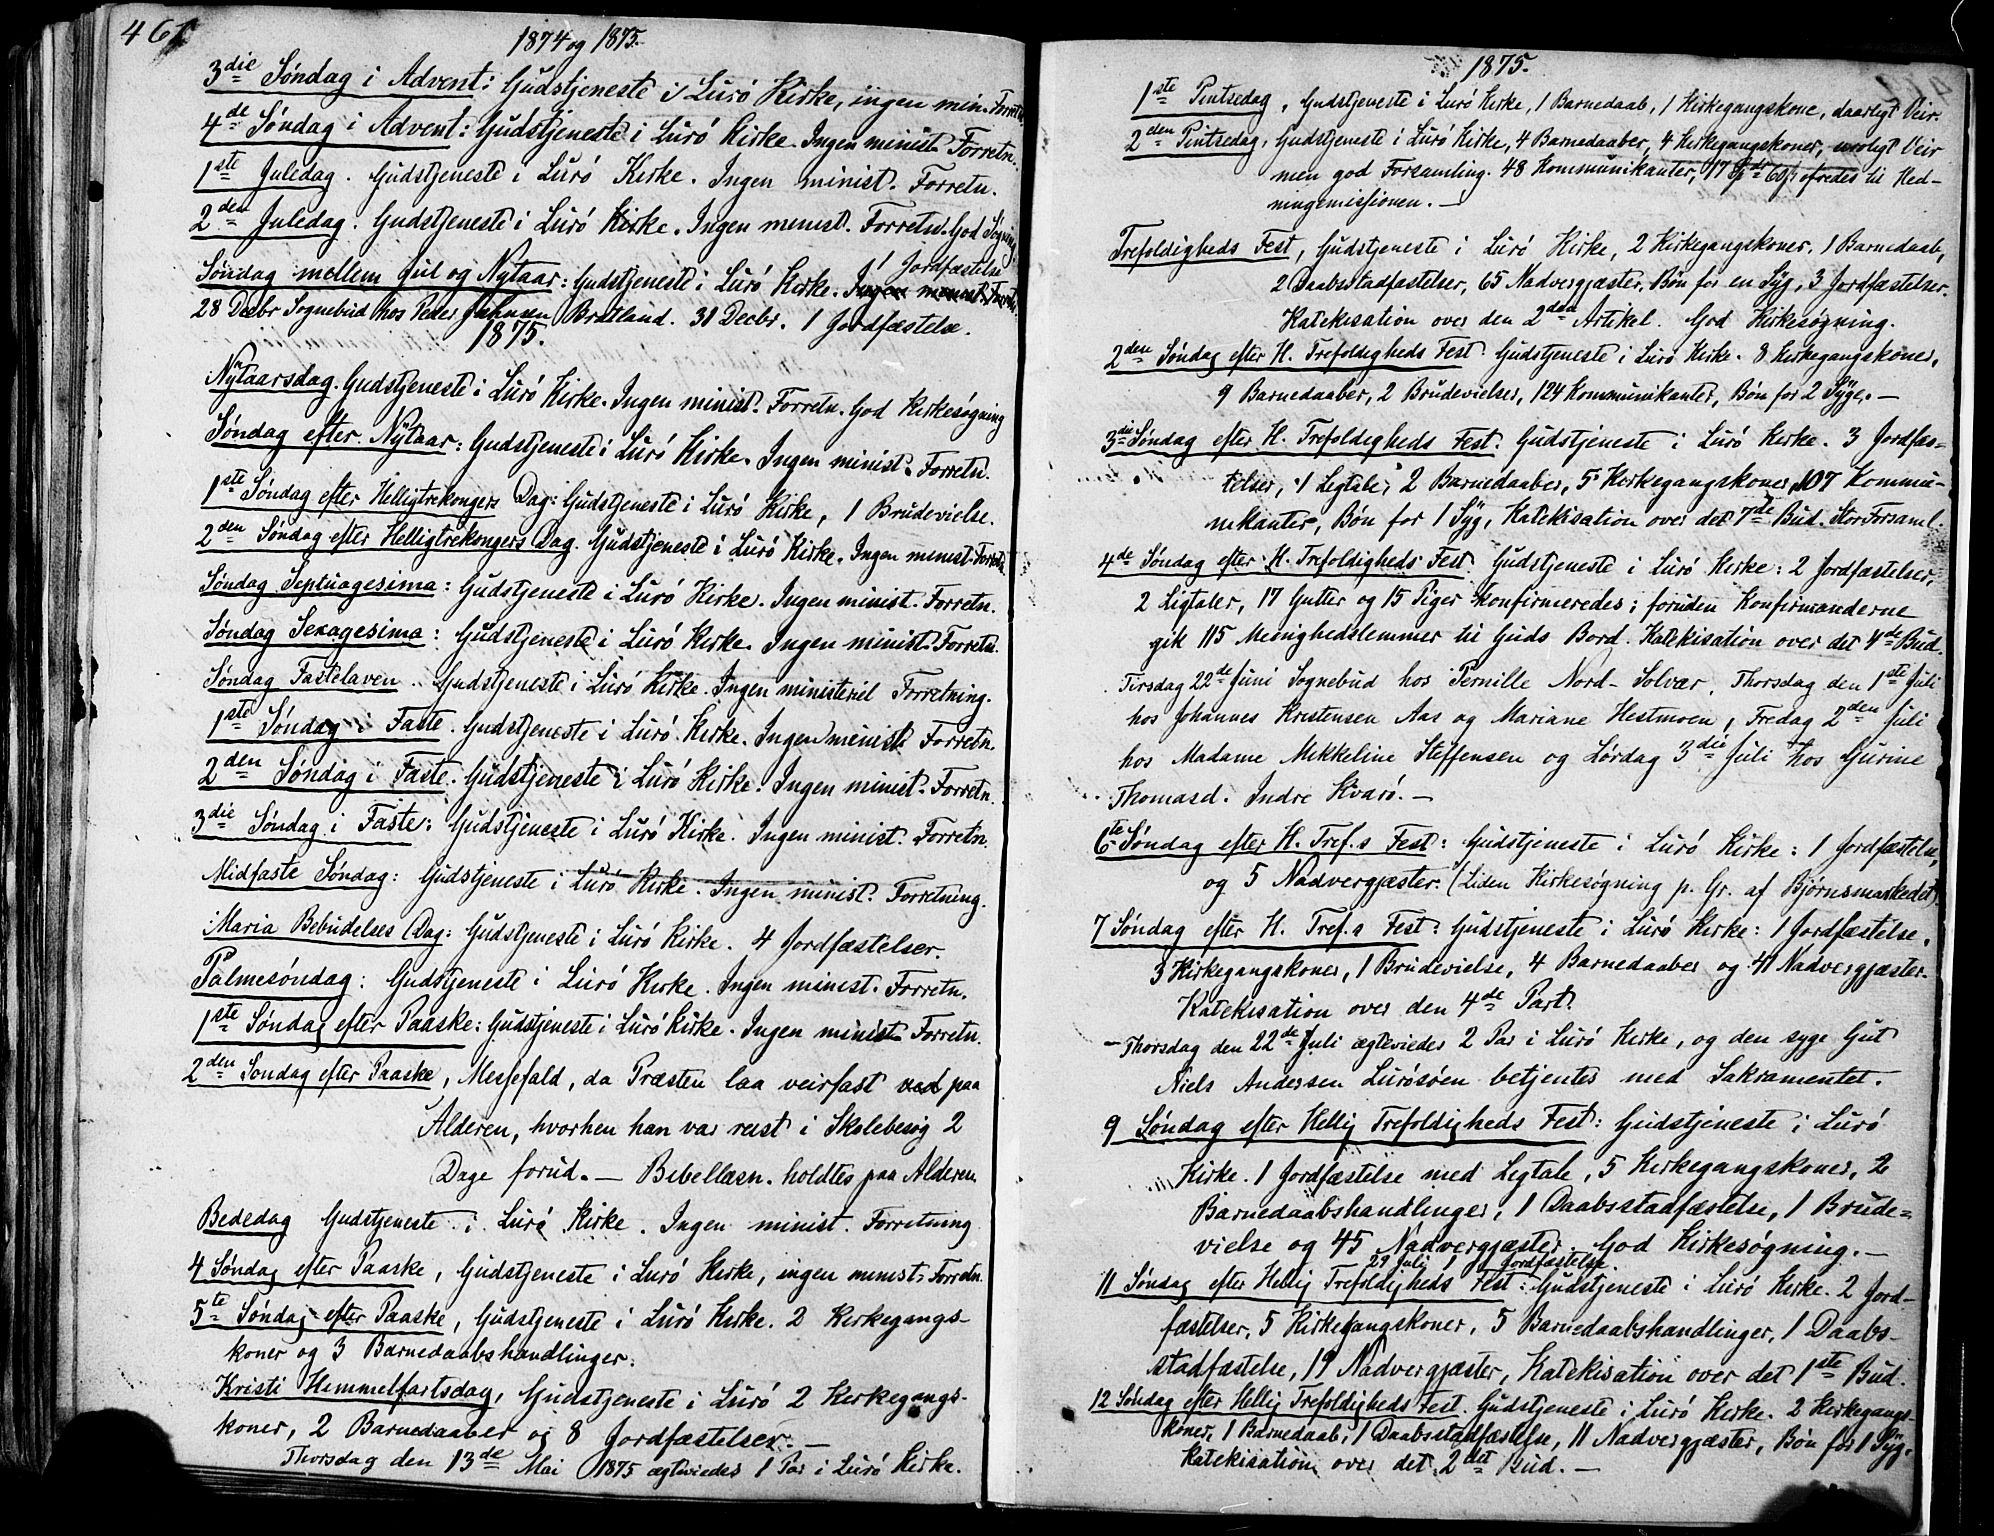 461
1874 og 1875.
3die Søndag i Advent: Gudstjeneste i Lurö Kirke, ingen min. Forretn.
4de Søndag i Advent: Gudstjeneste i Lurö Kirke. Ingen minist. Forretn.
1ste Juledag. Gudstjeneste i Lurö Kirke. Ingen minist. Forretn.
2den Juledag. Gudstjeneste i Lurö Kirke. Ingen minist. Forretn. God Søgning
1 Jordfæstelse
Søndag mellem Jul og Nytaar: Gudstjeneste i Lurö Kirke. Ingen minist. Forretn.
28 Decbr Sognebud hos Peder Johnsen Bratland. 31 Decbr. 1 Jordfæstelse.
1875.
Nytaarsdag. Gudstjeneste i Lurö Kirke. Ingen minist. Forretn. God Kirkesøgning
Søndag efter Nytaar: Gudstjeneste i Lurö Kirke. Ingen minist. Forretn.
1ste Søndag efter Helligtrekongers Dag: Gudstjeneste i Lurö Kirke, 1 Brudevielse.
2den Søndag efter Helligtrekongers Dag. Gudstjeneste i Lurö Kirke. Ingen minist. Forretn.
Søndag Septuagesima: Gudstjeneste i Lurö Kirke. Ingen minist. Forretn.
Søndag Sexagesima: Gudstjeneste i Lurö Kirke. Ingen minist. Forretn.
Søndag Fastelaven. Gudstjeneste i Lurö Kirke. Ingen ministeriel Forretning.
1ste Søndag i Faste. Gudstjeneste i Lurö Kirke. Ingen minist. Forretn.
2den Søndag i Faste. Gudstjeneste i Lurö Kirke. Ingen minist. Forretn.
3die Søndag i Faste: Gudstjeneste i Lurö Kirke. Ingen minist. Forretn.
Midfaste Søndag: Gudstjeneste i Lurö Kirke. Ingen minist. Forretning.
Maria Bebudelses Dag: Gudstjeneste i Lurö Kirke. 4 Jordfæstelser.
Palmesøndag: Gudstjeneste i Lurö Kirke. Ingen minist. Forretn.
1ste Søndag efter Paaske: Gudstjeneste i Lurö Kirke. Ingen minist. Forretn.
2den Søndag efter Paaske, Messefald, da Præsten laa veirfast ved paa
Alderen, hvorhen han var reist i Skolebesøg 2
Dage forud. — Bibellæsn. holdtes paa Alderen
Bededag Gudstjeneste i Lurö Kirke. Ingen minist. Forretning
4 Søndag efter Paaske, Gudstjeneste i Lurö Kirke, ingen minist. Forretn.
5te Søndag efter Paaske, Gudstjeneste i Lurö Kirke. 2 Kirkegangs-
koner og 3 Barnedaabshandlinger.
Kristi Himmelfartsdag, Gudstjeneste i Lurö 2 Kirkegangs-
koner, 2 Barnedaaber og 8 Jordfæstelser. —
Thorsdag den 13de Mai 1875 ægtviedes 1 Par i Lurö Kirke.
1875.
1ste Pintsedag, Gudstjeneste i Lurö Kirke, 1 Barnedaab, 1 Kirkegangskone, daarligt Veir.
2den Pintsedag, Gudstjeneste i Lurö Kirke, 4 Barnedaaber, 4 Kirkegangskoner, uroligt Veir
men god Forsamling. 48 Kommunikanter, 17 ofredes til Hed-
ningemissionen. —
Trefoldigheds Fest, Gudstjeneste i Lurö Kirke, 2 Kirkegangskoner, 1 Barnedaab,
2 Daabsstadfæstelser, 65 Nadvergjæster, Bøn for en Syg, 3 Jordfæstelser.
Katekisation over den 2den Artikel. God Kirkesøgning.
2den Søndag efter H. Trefoldigheds Fest Gudstjeneste i Lurö Kirke. 8 Kirkegangskoner,
9 Barnedaaber, 2 Brudevielser, 124 Kommunikanter, Bøn for 2 Syge. —
3die Søndag efter H. Trefoldigheds Fest: Gudstjeneste i Lurö Kirke. 3 Jordfæs=
telser, 1 Ligtale, 2 Barnedaaber, 5 Kirkegangskoner, 107 Kommu-
nikanter, Bøn for 1 Syg, Katekisation over det 7de Bud. Stor Forsaml.
4de Søndag efter H. Trefoldigheds Fest. Gudstjeneste i Lurö Kirke: 2 Jordfæstelser,
2 Ligtaler, 17 Gutter og 15 Piger konfirmeredes; foruden Konfirmanderne
gik 115 Menighedslemmer til Guds Bord. Katekisation over det 4de Bud.
Tirsdag 22de Juni Sognebud hos Pernille Nord-Solvær, Thorsdag den 1ste Juli
hos Johannes Kristensen Aas og Mariane Hestmoen, Fredag 2den Juli
hos Madame Mikkeline Steffensen og Lørdag 3die Juli hos Gurine
Thomasd. Indre Kvarö. —
6te Søndag efter H. Tref.s Fest: Gudstjeneste i Lurö Kirke: 1 Jordfæstelse,
og 5 Nadvergjæster. (Liden Kirkesøgning p. Gr. af Bjørnsmarkedet).
7 Søndag efter H. Tref.s Fest: Gudstjeneste i Lurö Kirke: 1 Jordfæstelse,
3 Kirkegangskoner, 1 Brudevielse, 4 Barnedaaber og 41 Nadvergjæster.
Katekisation over den 4de Part.
— Thorsdag den 22de Juli ægtevieder 2 Par i Lurö Kirke, og den syge Gut
Niels Andersen Lurösöen betjentes med Sakramentet.
9 Søndag efter Hellig Trefoldigheds Fest: Gudstjeneste i Lurö
Kirke. 1 Jordfæstelse med Ligtale, 5 Kirkegangskoner, 2
Barnedaabshandlinger, 1 Daabsstadfæstelse, 1 Brude=
vielse og 45 Nadvergjæster. God Kirkesøgning. —
29 Juli 1 Jordfæstelse.
11 Søndag efter Hellig Trefoldigheds Fest: Gudstjeneste i Lurö Kirke. 2 Jord-
fæstelser, 5 Kirkegangskoner, 5 Barnedaabshandlinger, 1 Daabs-
stadfæstelse, 19 Nadvergjæster, Katekisation over det 1ste Bud.
12 Søndag efter Hellig Trefoldigheds Fest. Gudstjeneste i Lurö Kirke. 2 Kirkegangs-
koner, 1 Barnedaab, 1 Daabsstadfæstelse, 11 Nadvergjæster, Bøn for 1 Syg,
Katekisation over det 2det Bud. —